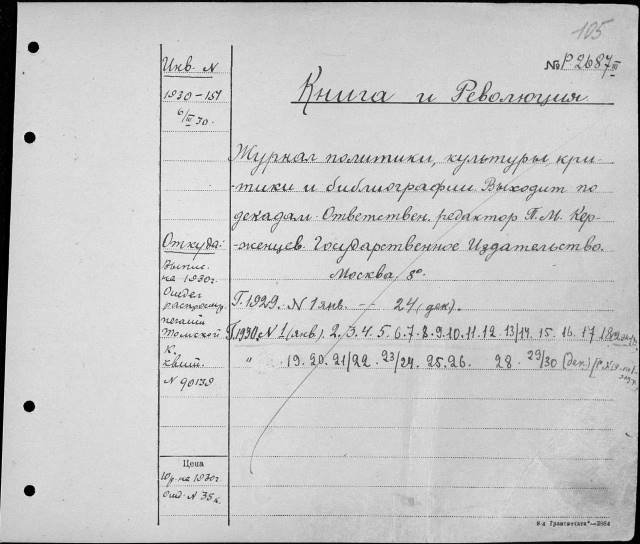 105
№ Р2687 III
Инв. N
1930-151
6/III 30.
Книга и Революция
Журнал политики, культуры, кри-
-тики и библиографии. Выходит по
декадам. Ответствен. редактор П. М. Кер-
-женцев. Государственное Издательство.
Москва, 8°.
Откуда:
Выпис.
на 1930 г.
Отдел
распростр.
Томской
к
квит.
N 90139
Г. 1929. N 1 янв. -- 24 (дек).
Г. 1930. N 1 (янв). 2. 3. 4. 5. 6. 7. 8. 9. 10. 11. 12. 13/14. 15. 16. 17. 18
" 19. 20. 21/22. 23/24. 25. 26. 28. 29/30 (дек)
Цена
на 1930 г.
отд. N 35 к.